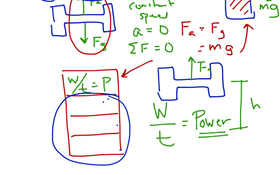 constant
speed
a = 0
ΣF = 0
Fg
Fa = Fg
= mg
mg
W/t = P
F
h
W
t
= Power